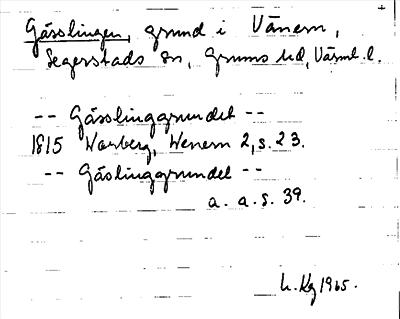 Gässlingen, grund i Vänern,
Segerstads sn, Grums hd, Värml. l.
-- Gässlinggrundet --
1815 Warberg, Wenern 2, s. 23.
-- Gäslinggrundet --
a. a. s. 39.
1965.